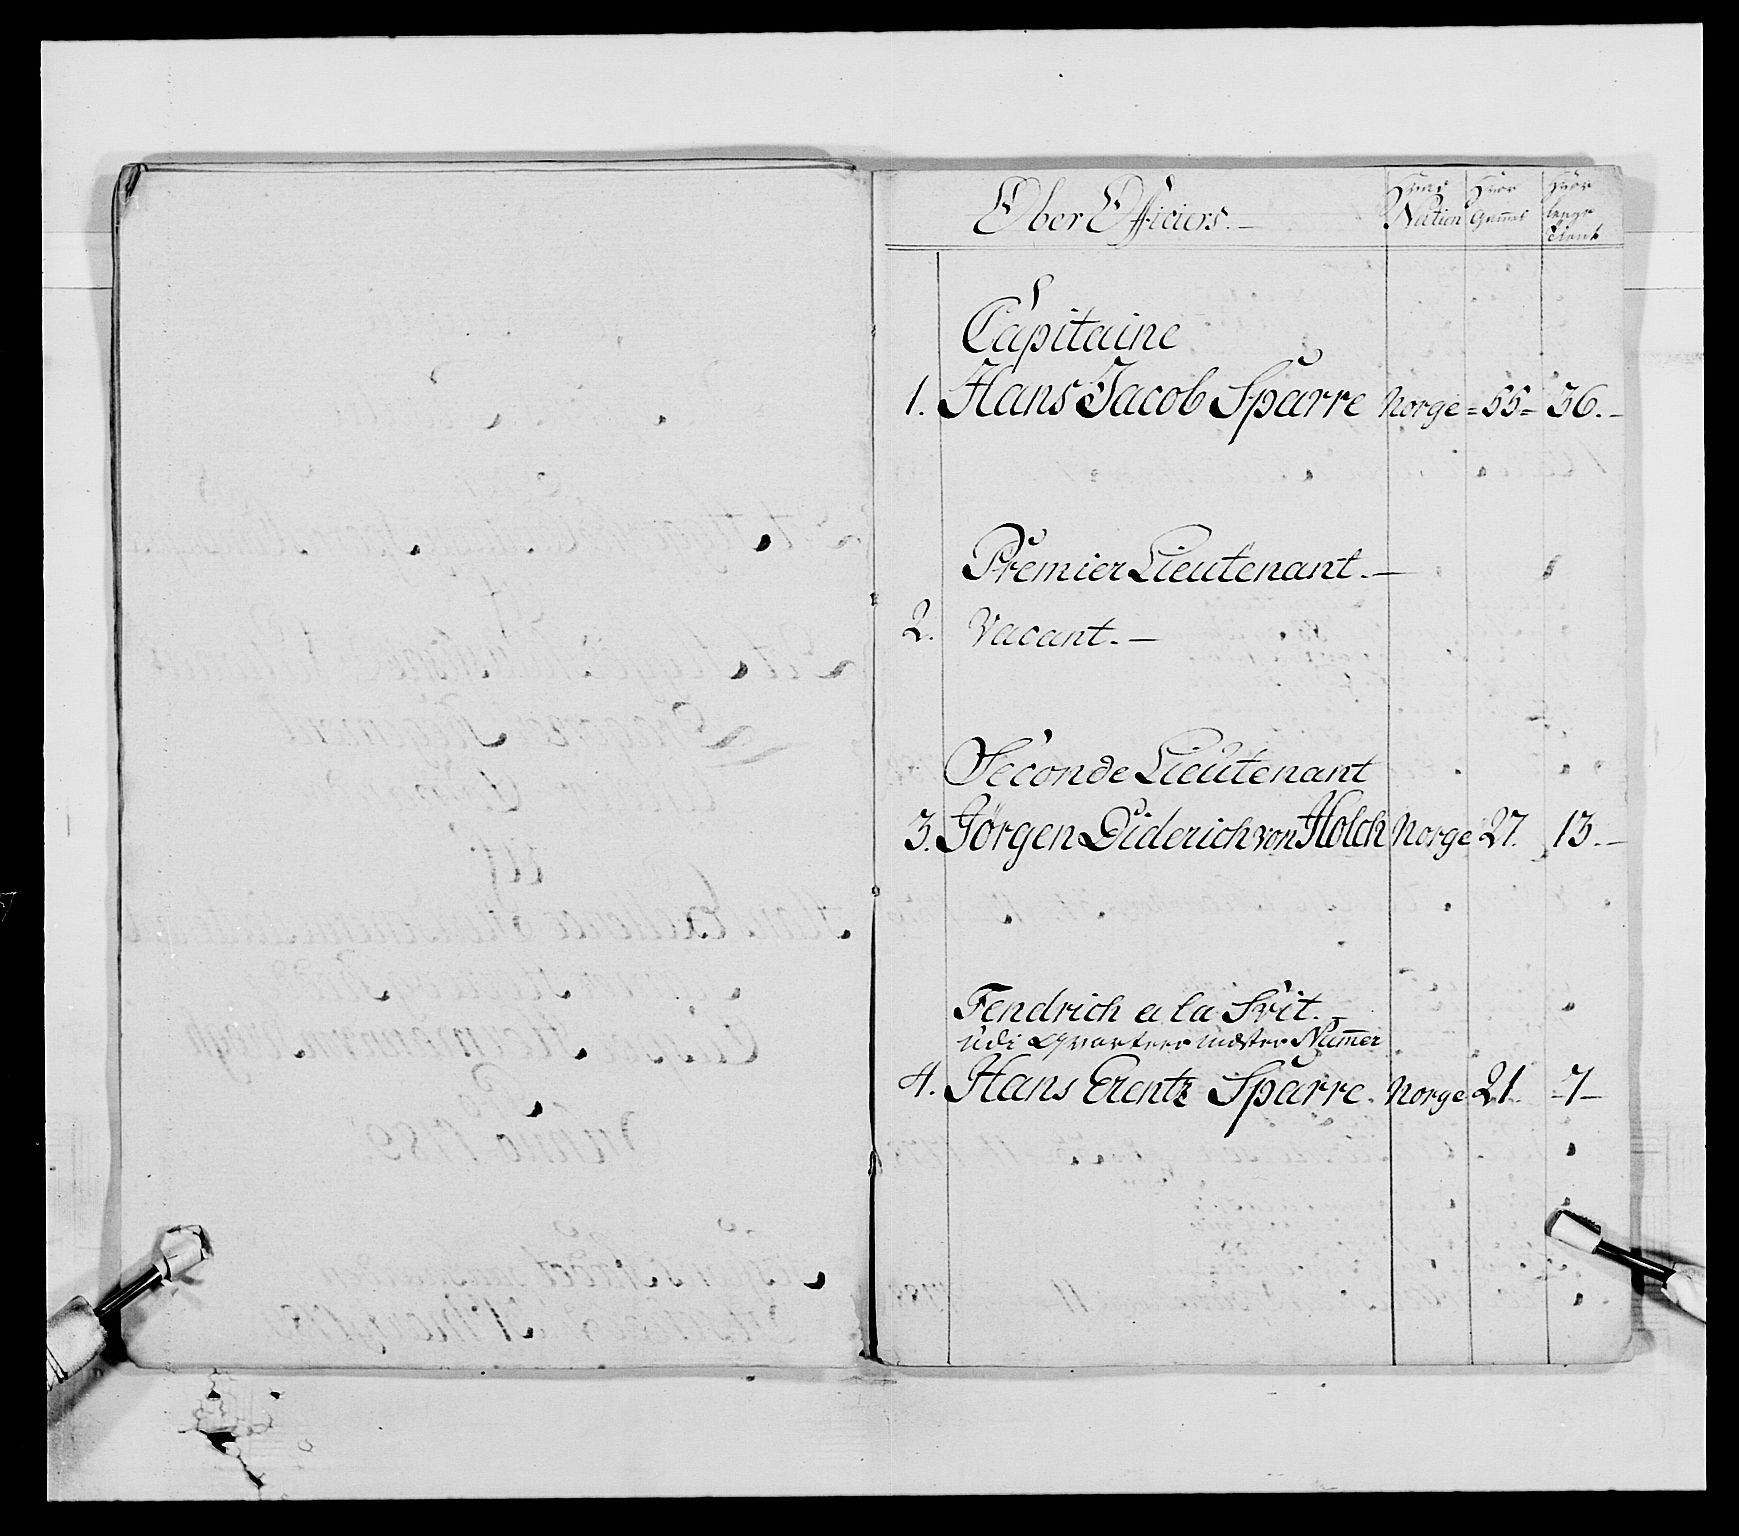 Ober Officiers.
Hvas Nation
Hvor Gammel
Hvor lenge tient
Capitaine
1. Hans Jacob Sparre Norge = 55 = 36.
Premier Lieutenant.
2. Vacant.
Seconde Lieutenant
3. Jörgen Diderich von Holch Norge 27. 13.
Fendrich a la Svit.
udi Qvarteermester Numer
4. Hans Erentz Sparre. Norge 21. 7